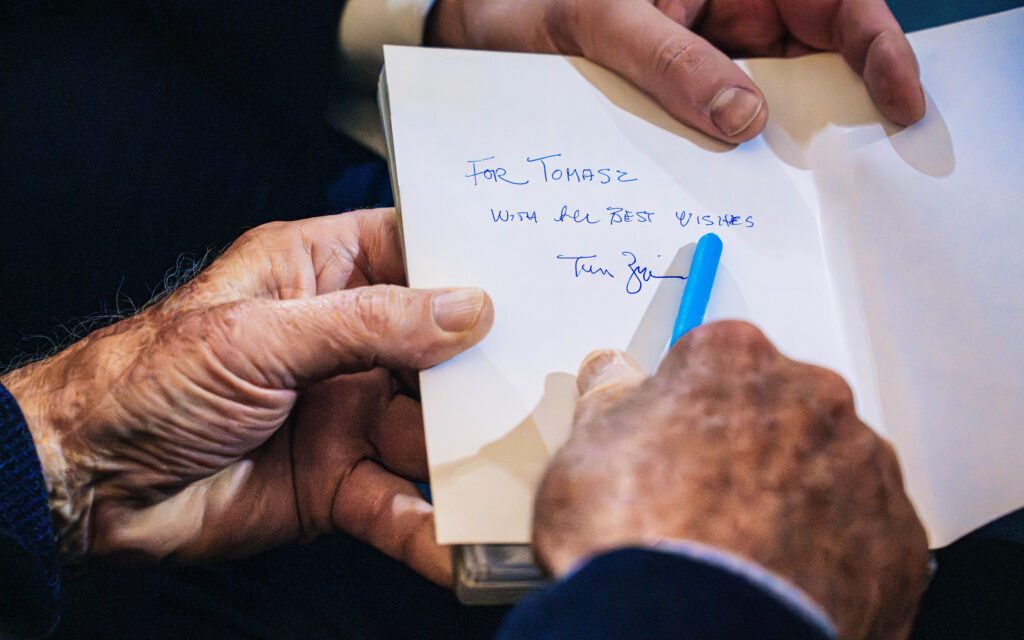 FOR TOMASZ
WITH ALL BEST WISHES